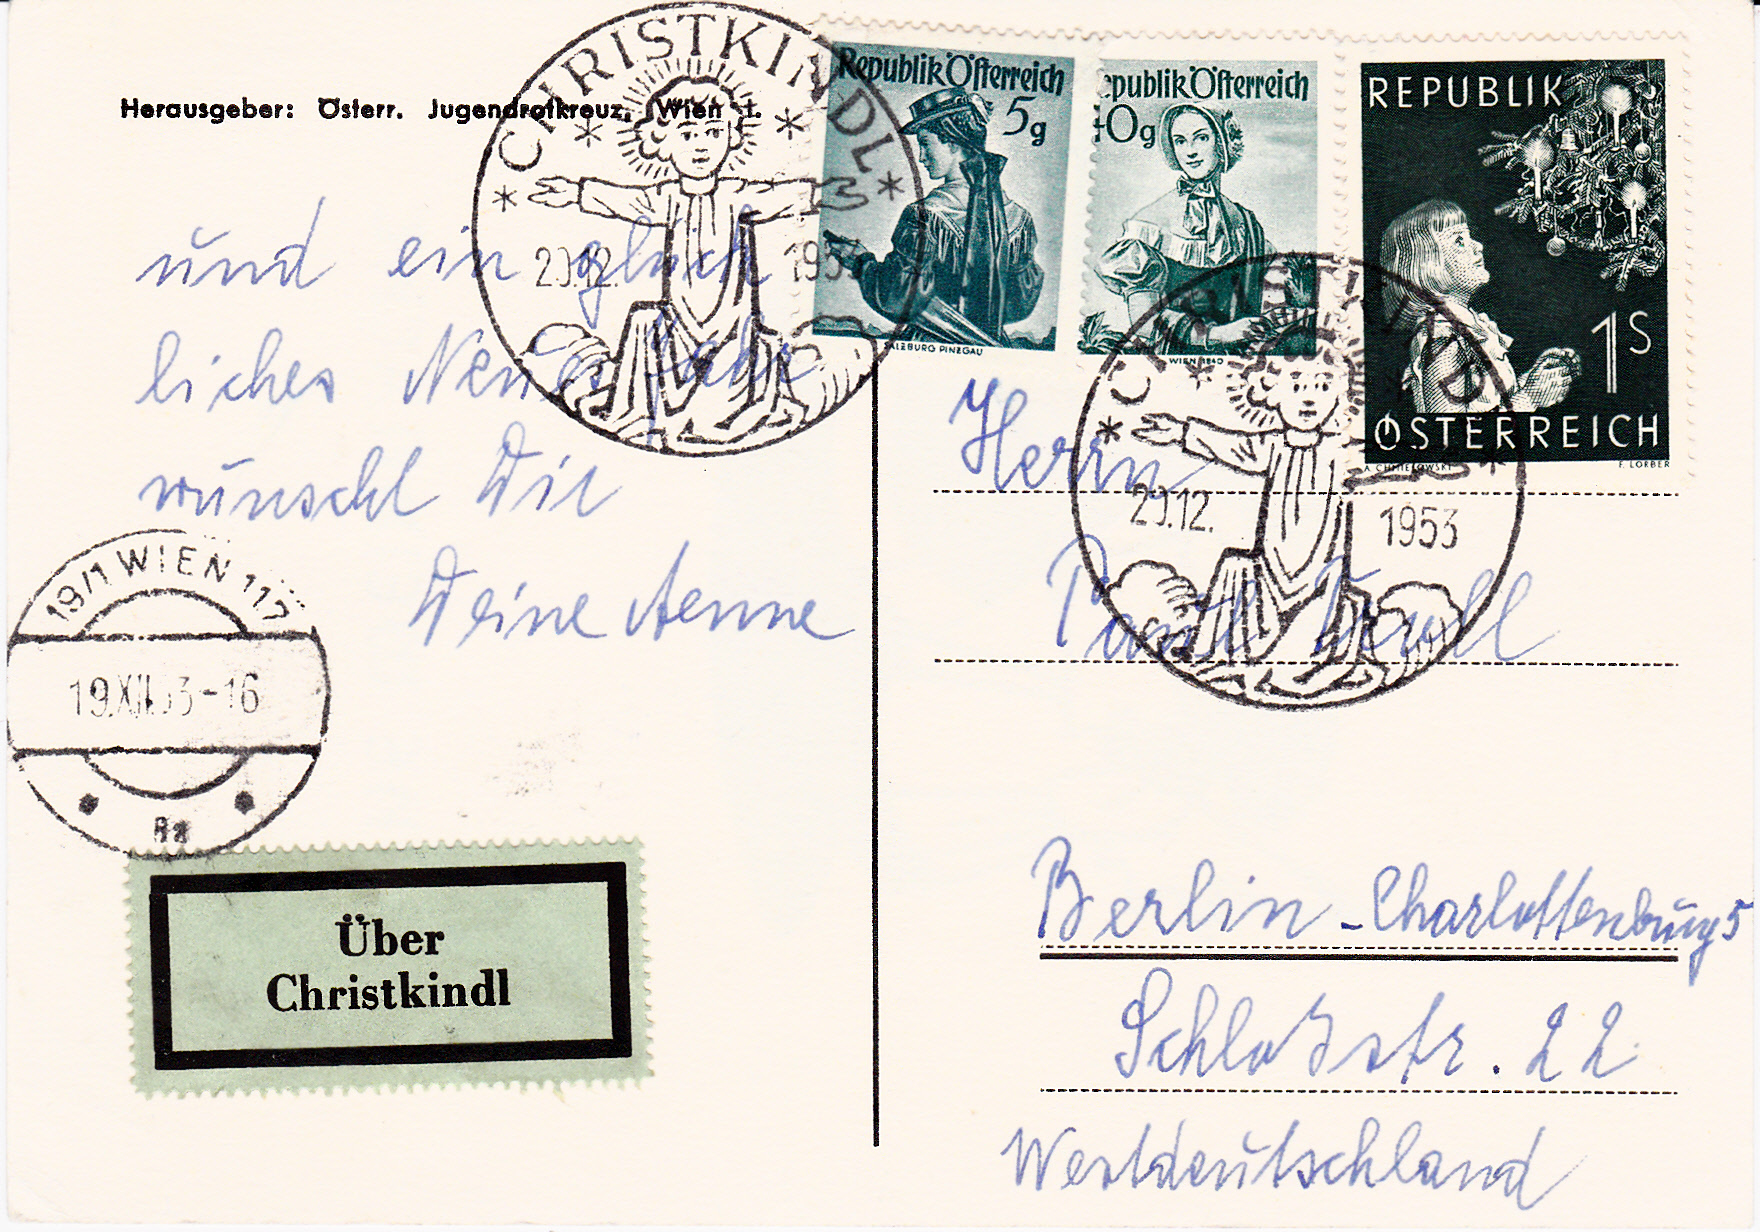 Herausgeber: Österr. Jugendrotkreuz, Wien I.
CHRISTKINDL
20.12. 1953
Republik Österreich
5g
SALZBURG PINZGAU
Republik Österreich
40g
WIEN 1840
REPUBLIK
1S
ÖSTERREICH
A CHMIELOWSKI F. LORBER
und ein glück
liches Neues Jahr
wünscht Dir
Deine Aenne
CHRISTKINDL
20.12. 1953
19/1 WIEN 117
19.XII.53-16
Über
Christkindl
Herrn
Berlin-Charlottenburg 5
Schloßstr. 22
Westdeutschland